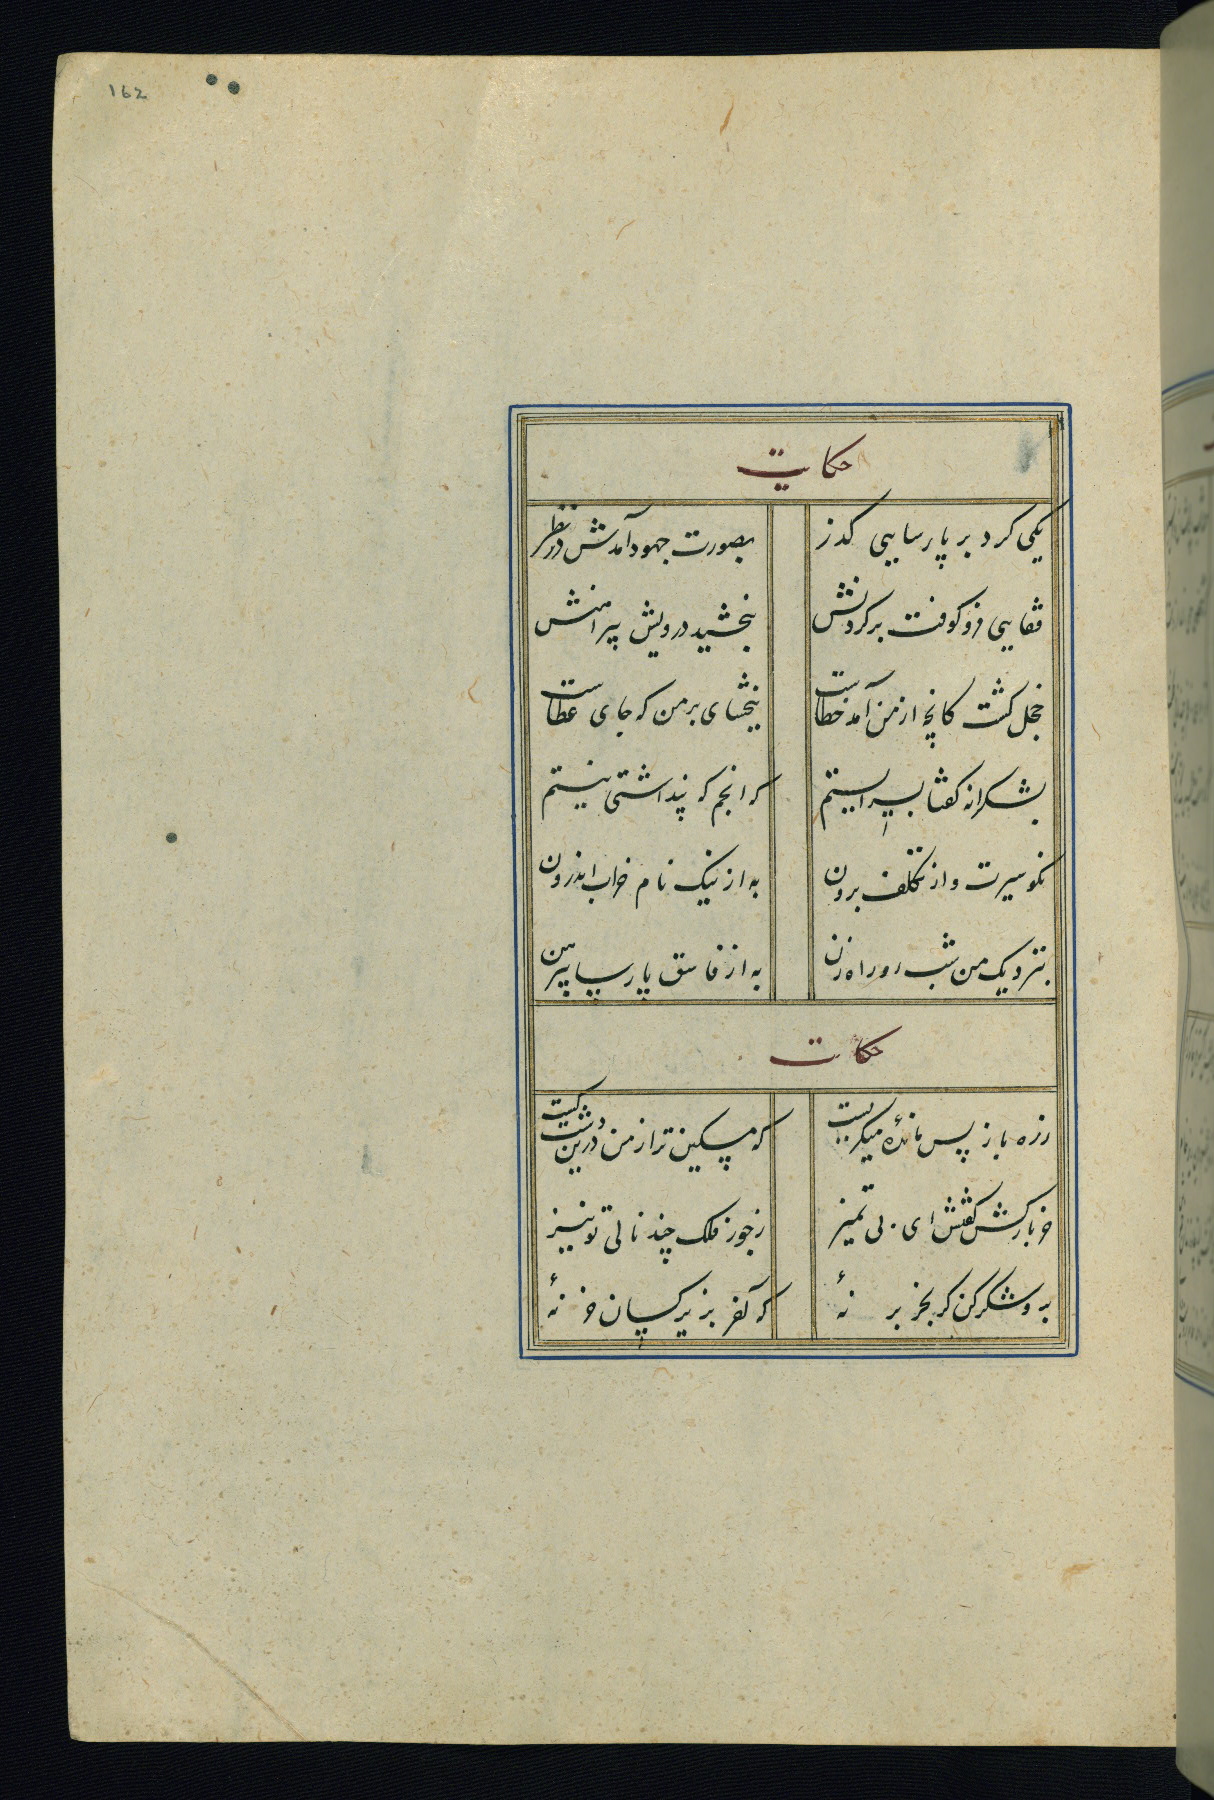 162
حکایت
یکی کرد بر پارسایی گذر بصورت جهود آمدش در نظر
قفایی فرو کوفت بر گردنش ببخشید درویش پیراهنش
خجل گشت کانچه از من آمد خطاست ببخشای بر من که جای عطاست
بشکرانه گفتا بسر ایستم که انجم که پنداشتی نیستم
نکو سیرت و از تکلف برون به از نیک نام خراب اندرون
بنزدیک من شب رو راه زن به از فاسق پارسا پیرهن
حکایت
زره باز پس مانده میگریست که مسکین تر از من درین دشت کیست
خر بارکش گفتش ای بی تمیز ز جور فلک چند نالی تو نیز
برو شکر کن گر بخر بر نهٔ که آخر بزیر کسان خر نهٔ